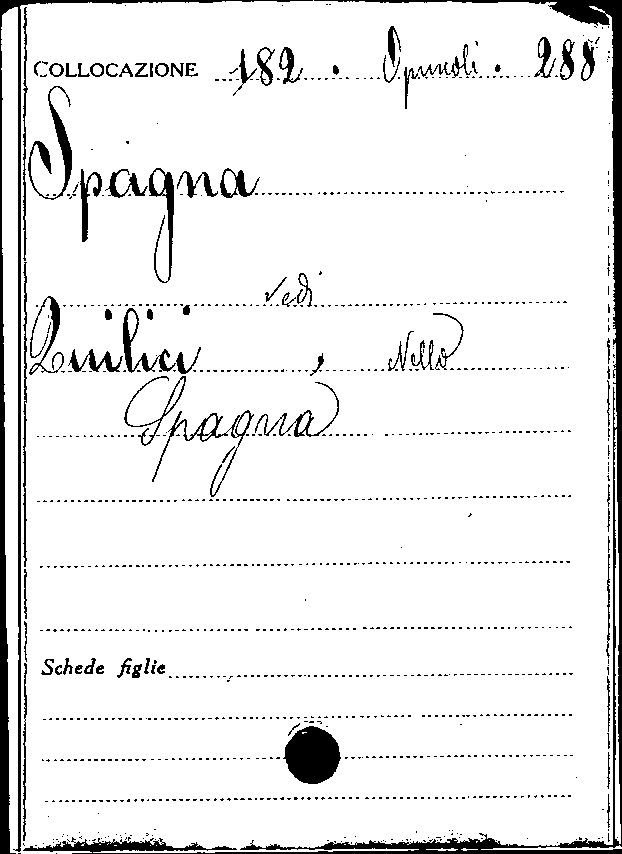 COLLOCAZIONE 182 . Opuscoli . 288
Spagna
Vedi
Quilici , Nello
Spagna
Schede figlie